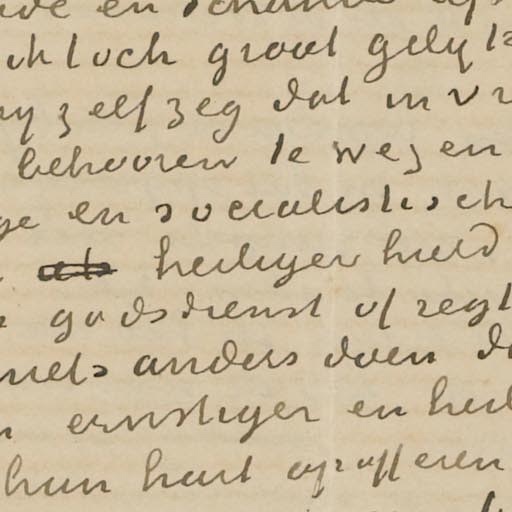 en schande
ik toch groot gelyk
zelf zeg dat in
behooren te wezen
en socialistisch
als heiliger hield
godsdienst of regt
niets anders doen
ernstiger en heil
hun hart opofferen